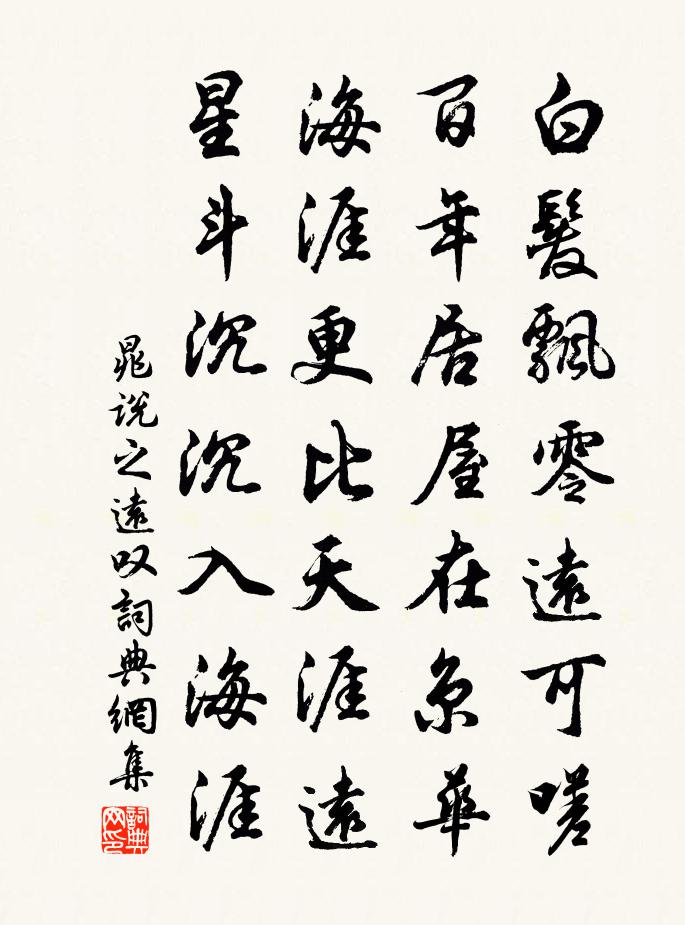 白髮飄零遠可嗟
百年居屋在京華
海涯更比天涯遠
星斗沉沉入海涯
晁說之遠叹詞典網集
詞典網印